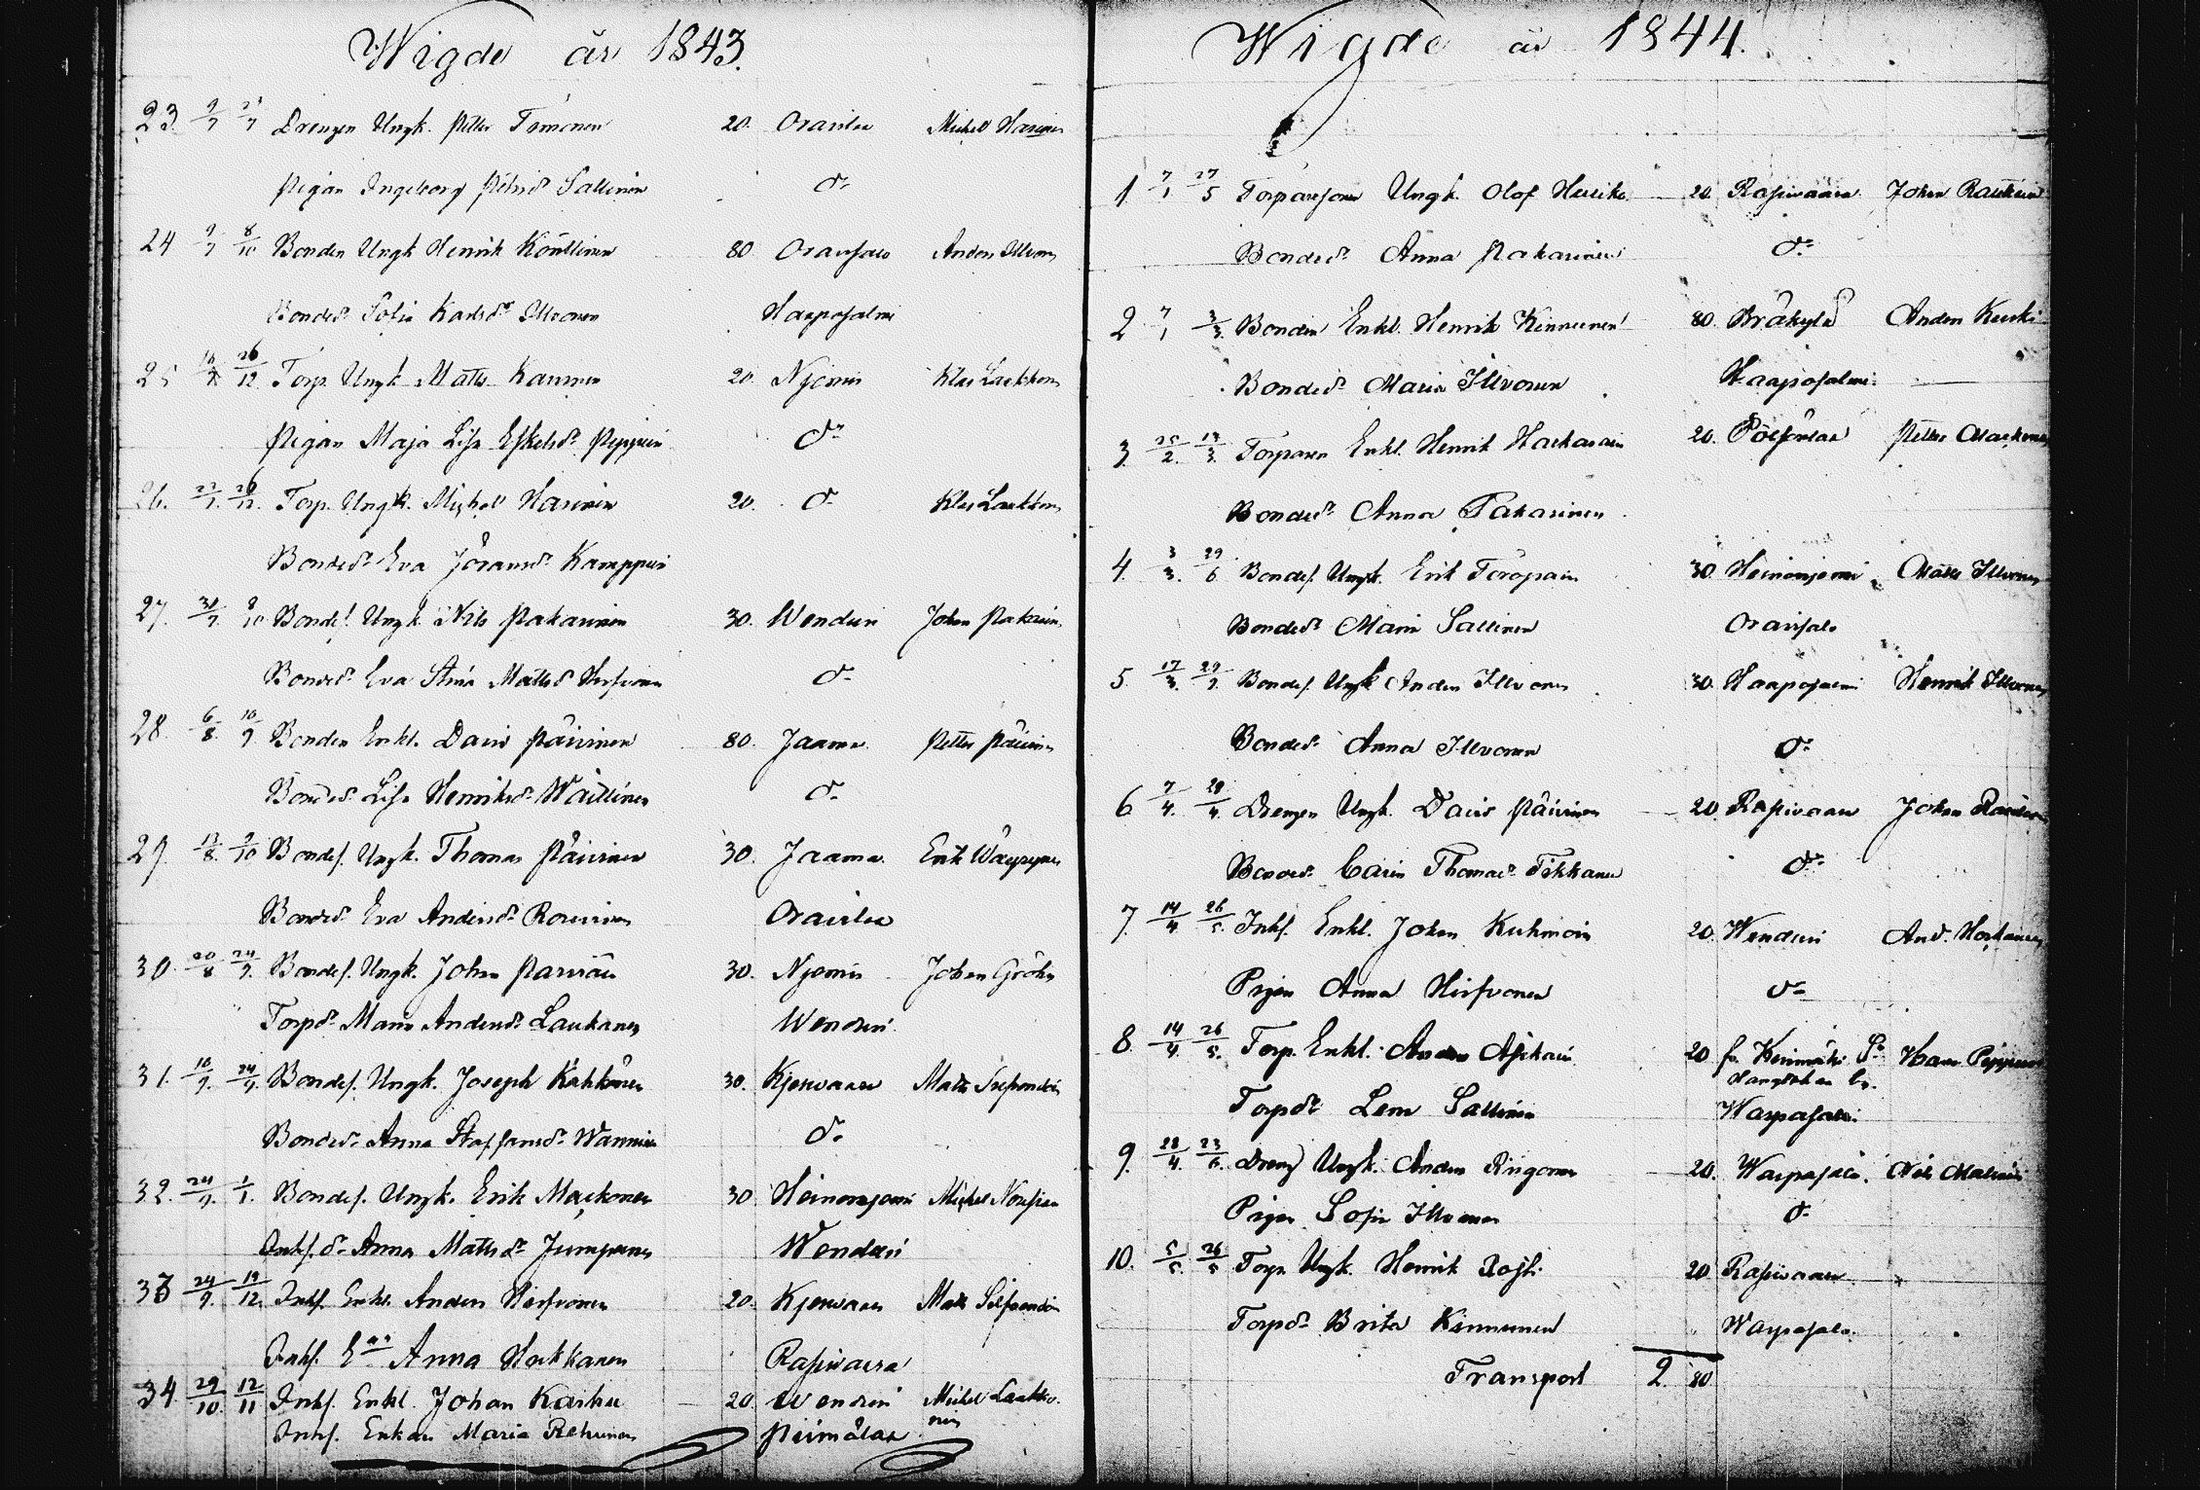 Wigde år 1843.
23. 9/7 23/7 Drengen Ungk. Petter Timonen 20. Oravilax Michel Harinen
Pigan Ingeborg Petrisdr Sallinen do
24 9/7 8/10 Bonden Ungk Henrik Konttinen 80. Oravisalo Anders Ilvonen
Bondedr Sofia Karlsdr Ilvonen Haapasalmi
25 16/7 26/12 Torp. Ungk Matts Kaurinen 20. Njemis Klas Laakkonen
Pigan Maja Lisa Eskelsdr Pippuri do
26. 23/7. 26/12. Torp. Ungk. Michel Harinen 20. do Klas Laakkonen
Bondedr Eva Jöransdr Kamppuri
27. 30/7. 8/10 Bondes. Ungk. Nils Pakarinen 30. Wenduri Johan Pakarinen
Bondedr Eva Stina Mattsdr Hirfvonen do
28. 6/8. 10/9. Bonden Enkl. David Päivinen 80. Jaama Petter Päivinen
Bondedr Lisa Henriksdr Wäillinen do
29 13/8. 9/10 Bondes. Ungk. Thomas Päivinen 30. Jaama Erik Wäyrynen
Bondedr Eva Andersdr Rouvinen Oravilax
30. 20/8 24/9. Bondes. Ungk. Johan Parviäin 30. Njemis Johan Gröhn
Torpdr Maria Andersdr Laukanen Wenduri
31. 10/9. 24/9. Bondes. Ungk. Joseph Kähkönen 30. Kjervaara Matts
Bondedr Anna Staffansdr Wanninen do
32. 24/9. 1/1. Bondes. Ungk. Erik Mackonen 30 Heinoniemi Michel Nousiain
Inhs. dr Anna Mattsdr Jumpanen Wenduri
33 24/9. 19/12. Inhs. Enkl. Anders Hirfvonen 20. Kjervaara Matts
Inhs. Ean Anna Hackkanen Rasivaara
34. 29/10. 12/11 Inhs. Enkl. Johan Karhu 20. Wenduri Michel Laakkonen
Inhs. Enkan Maria Rehunen Piimälax
Wigde år 1844.
1 7/1 27/5 Torparesonen Ungk. Olof Hacika 20. Rasivaara Johan Rautiain
Bondedr Anna Pakarinen do
2 7/1 3/3. Bonden Enkl. Henrik Kinnunen 80. Bräkylä Anders Kurki
Bondedr Maria Ilvonen Haapasalmi
3. 25/2. 13/3. Torparen Enkl. Henrik Harkarain 20. Pölsönlax Petter Mackonen
Bondedr Anna Pakarinen
4. 3/3. 29/6. Bondes. Ungk. Erik Toropain 30 Heinoniemi Matts Ilvonen
Bondedr Maria Sallinen Oravisalo
5. 17/3. 29/9. Bondes. Ungk Anders Ilvonen 30. Haapasalmi Henrik Ilvonen
Bondedr Anna Ilvonen do
6 7/4. 28/4. Drengen Ungk. David Päivinen 20. Rasivaara Johan
Bondedr Carin Thomasdr Tikkanen do
7. 14/4 26/5. Inhs. Enkl. Johan Kuhmoin 20. Wenduri And.
Pigan Anna Hirfvonen do
8. 14/4. 26/5. Torp. Enkl. Anders Asikain 20 fr. Kerimäki Sn Hans Pippuri
Warpasalo.
Torpdr Lena Sallinen
9. 28/4. 23/6. Dreng Ungk. Anders Ringonen 20. Warpasalo. Nils Malinen
Pigan Sofia Ilvonen do
10. 5/5. 26/5 Torp. Ungk. Henrik Rojh. 20 Rasivaara
Torpdr Brita Kinnunen Warpasalo.
Transport 2. 80